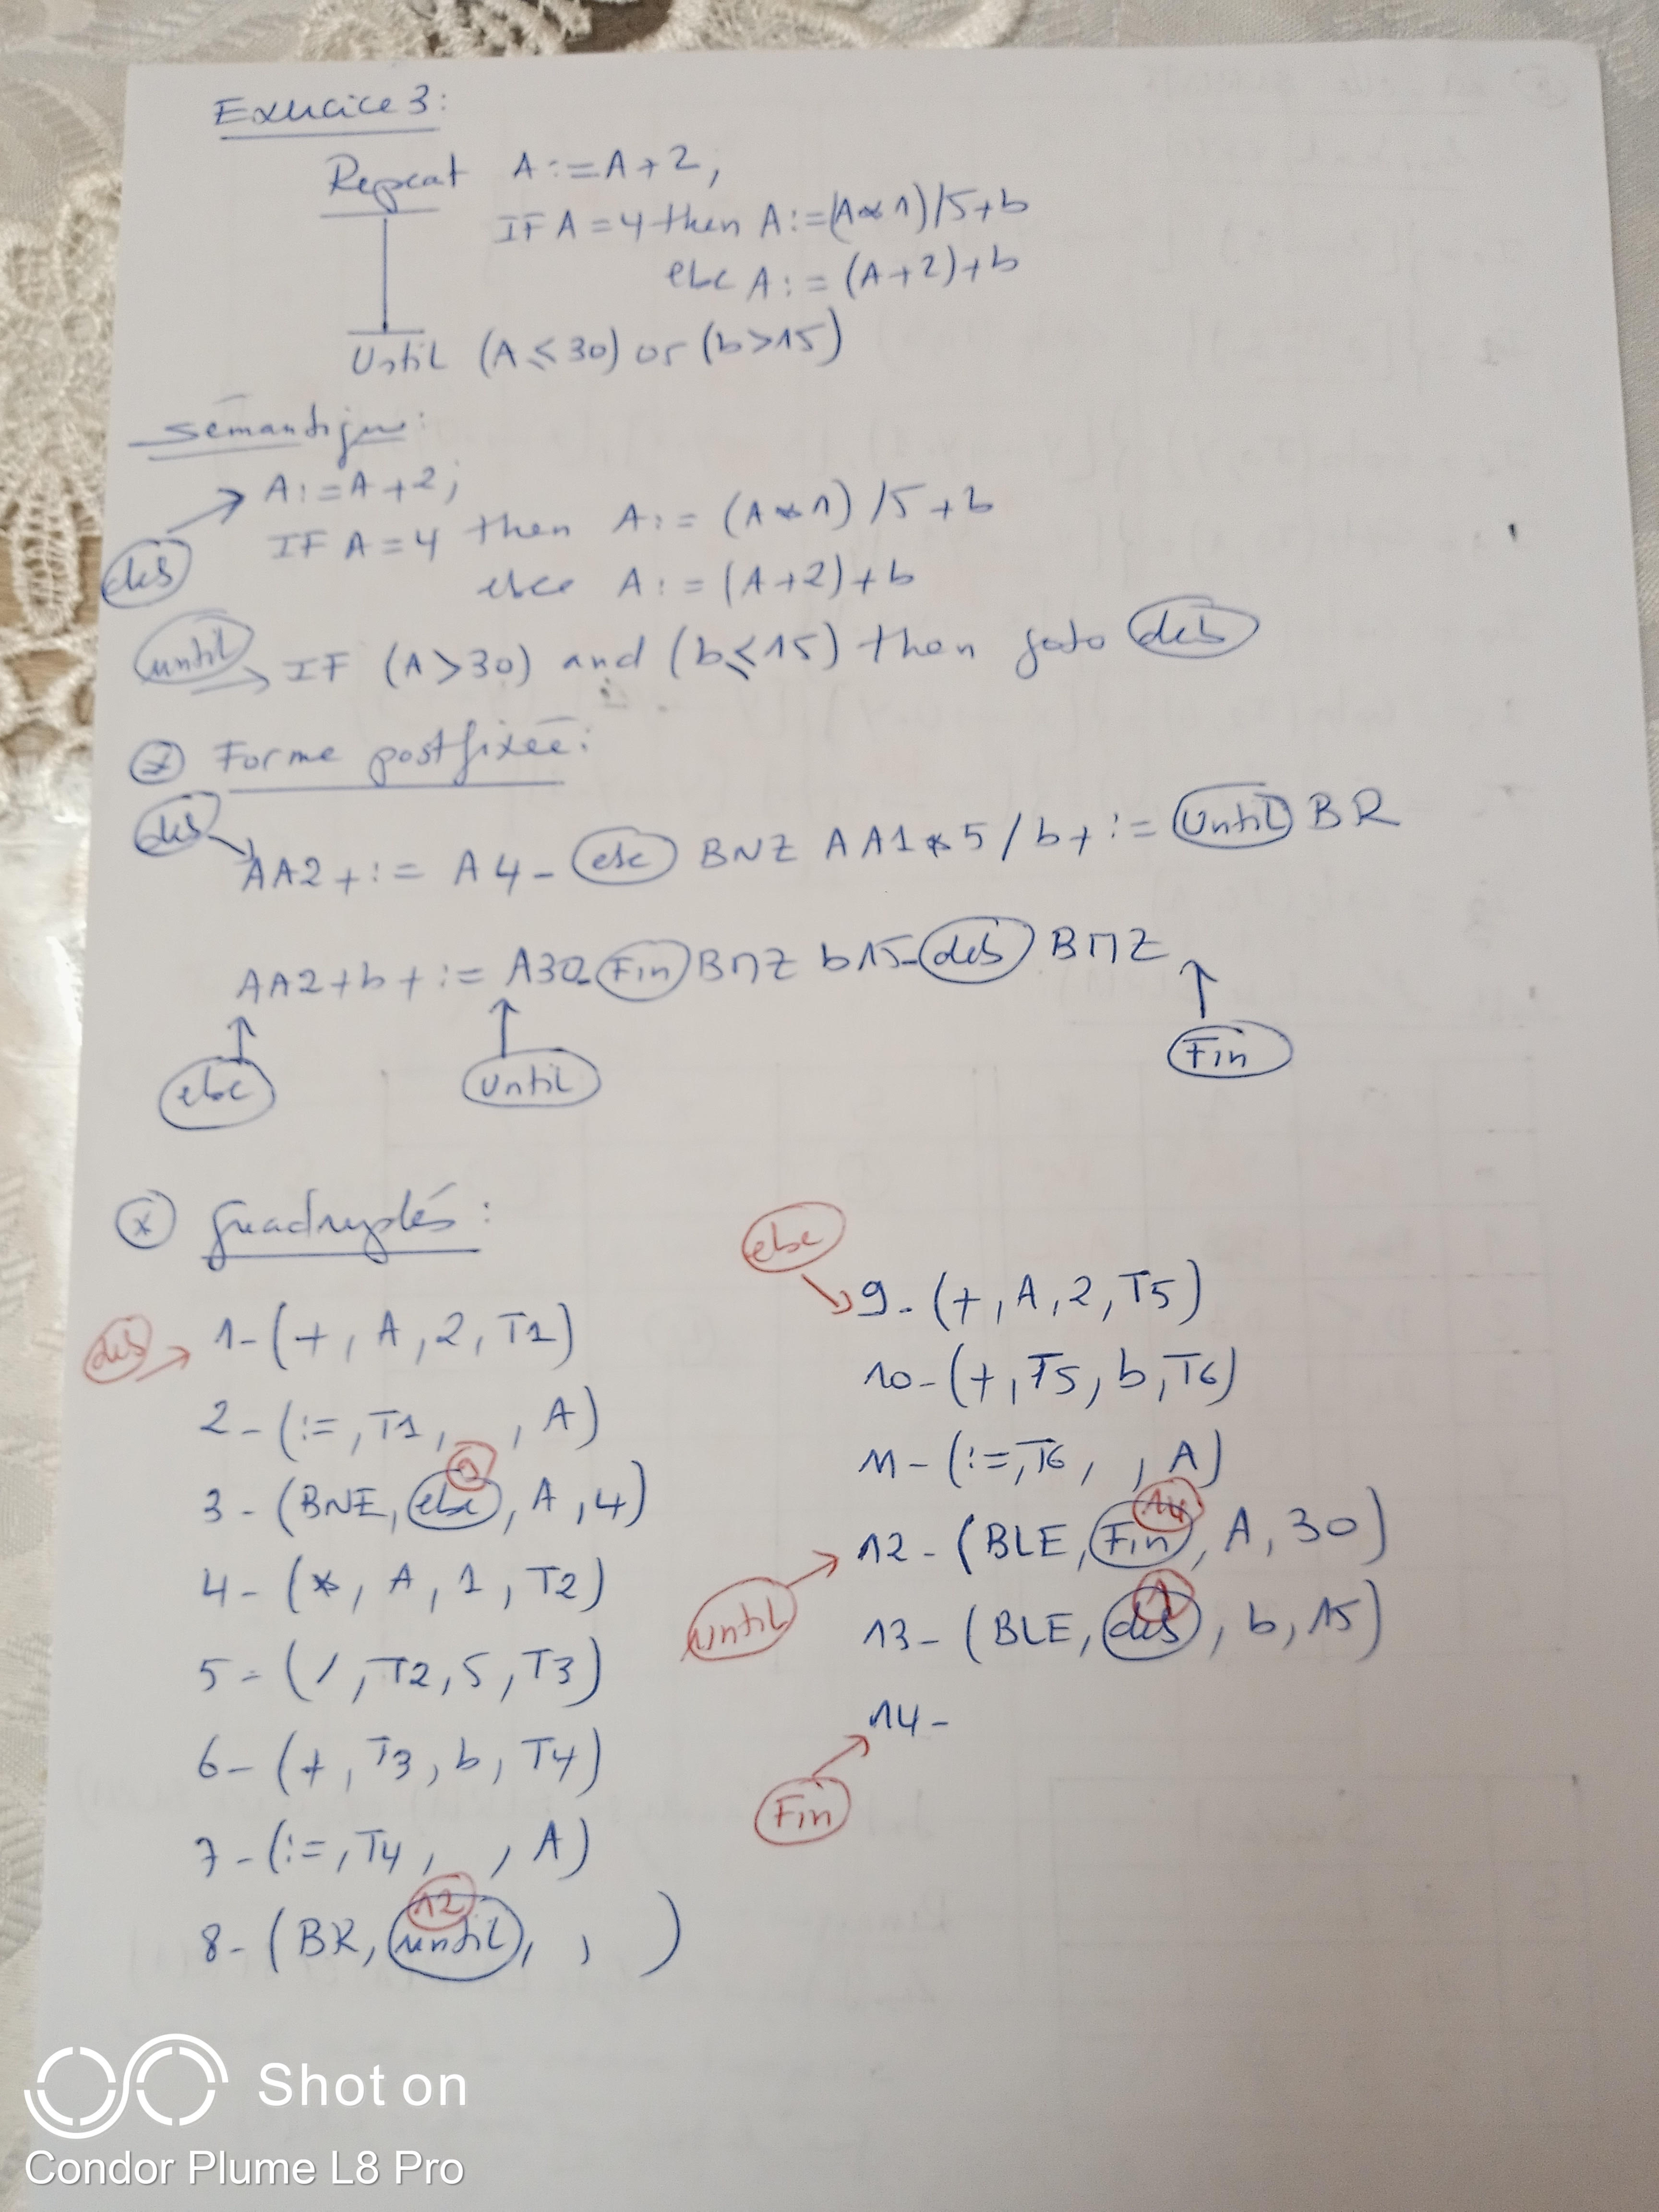 Exercice 3:
Repeat A:=A+2;
IF A=4 then A:=(A*1)/5+b
else A:=(A+2)+b
Until (A≤30) or (b>15)
Sémantique:
A:=A+2;
deb
IF A=4 then A:=(A*1)/5+b
else A:=(A+2)+b
until IF (A>30) and (b≤15) then goto deb
Forme postfixée:
deb
AA2+:= A4- else BNZ AA1*5/b+:= Until BR
AA2+b+:= A30- Fin BMZ b15- deb BMZ
else until Fin
quadruplés:
deb 1-(+,A,2,T1)
2-(:=,T1, ,A)
9
3-(BNE,else,A,4)
4-(*,A,1,T2)
5-(/,T2,5,T3)
6-(+,T3,b,T4)
7-(:=,T4, ,A)
12
8-(BR,until, , )
else
9-(+,A,2,T5)
10-(+,T5,b,T6)
11-(:=,T6, ,A)
14
12-(BLE,Fin,A,30)
until
1
13-(BLE,deb,b,15)
14-
Fin
Shot on
Condor Plume L8 Pro